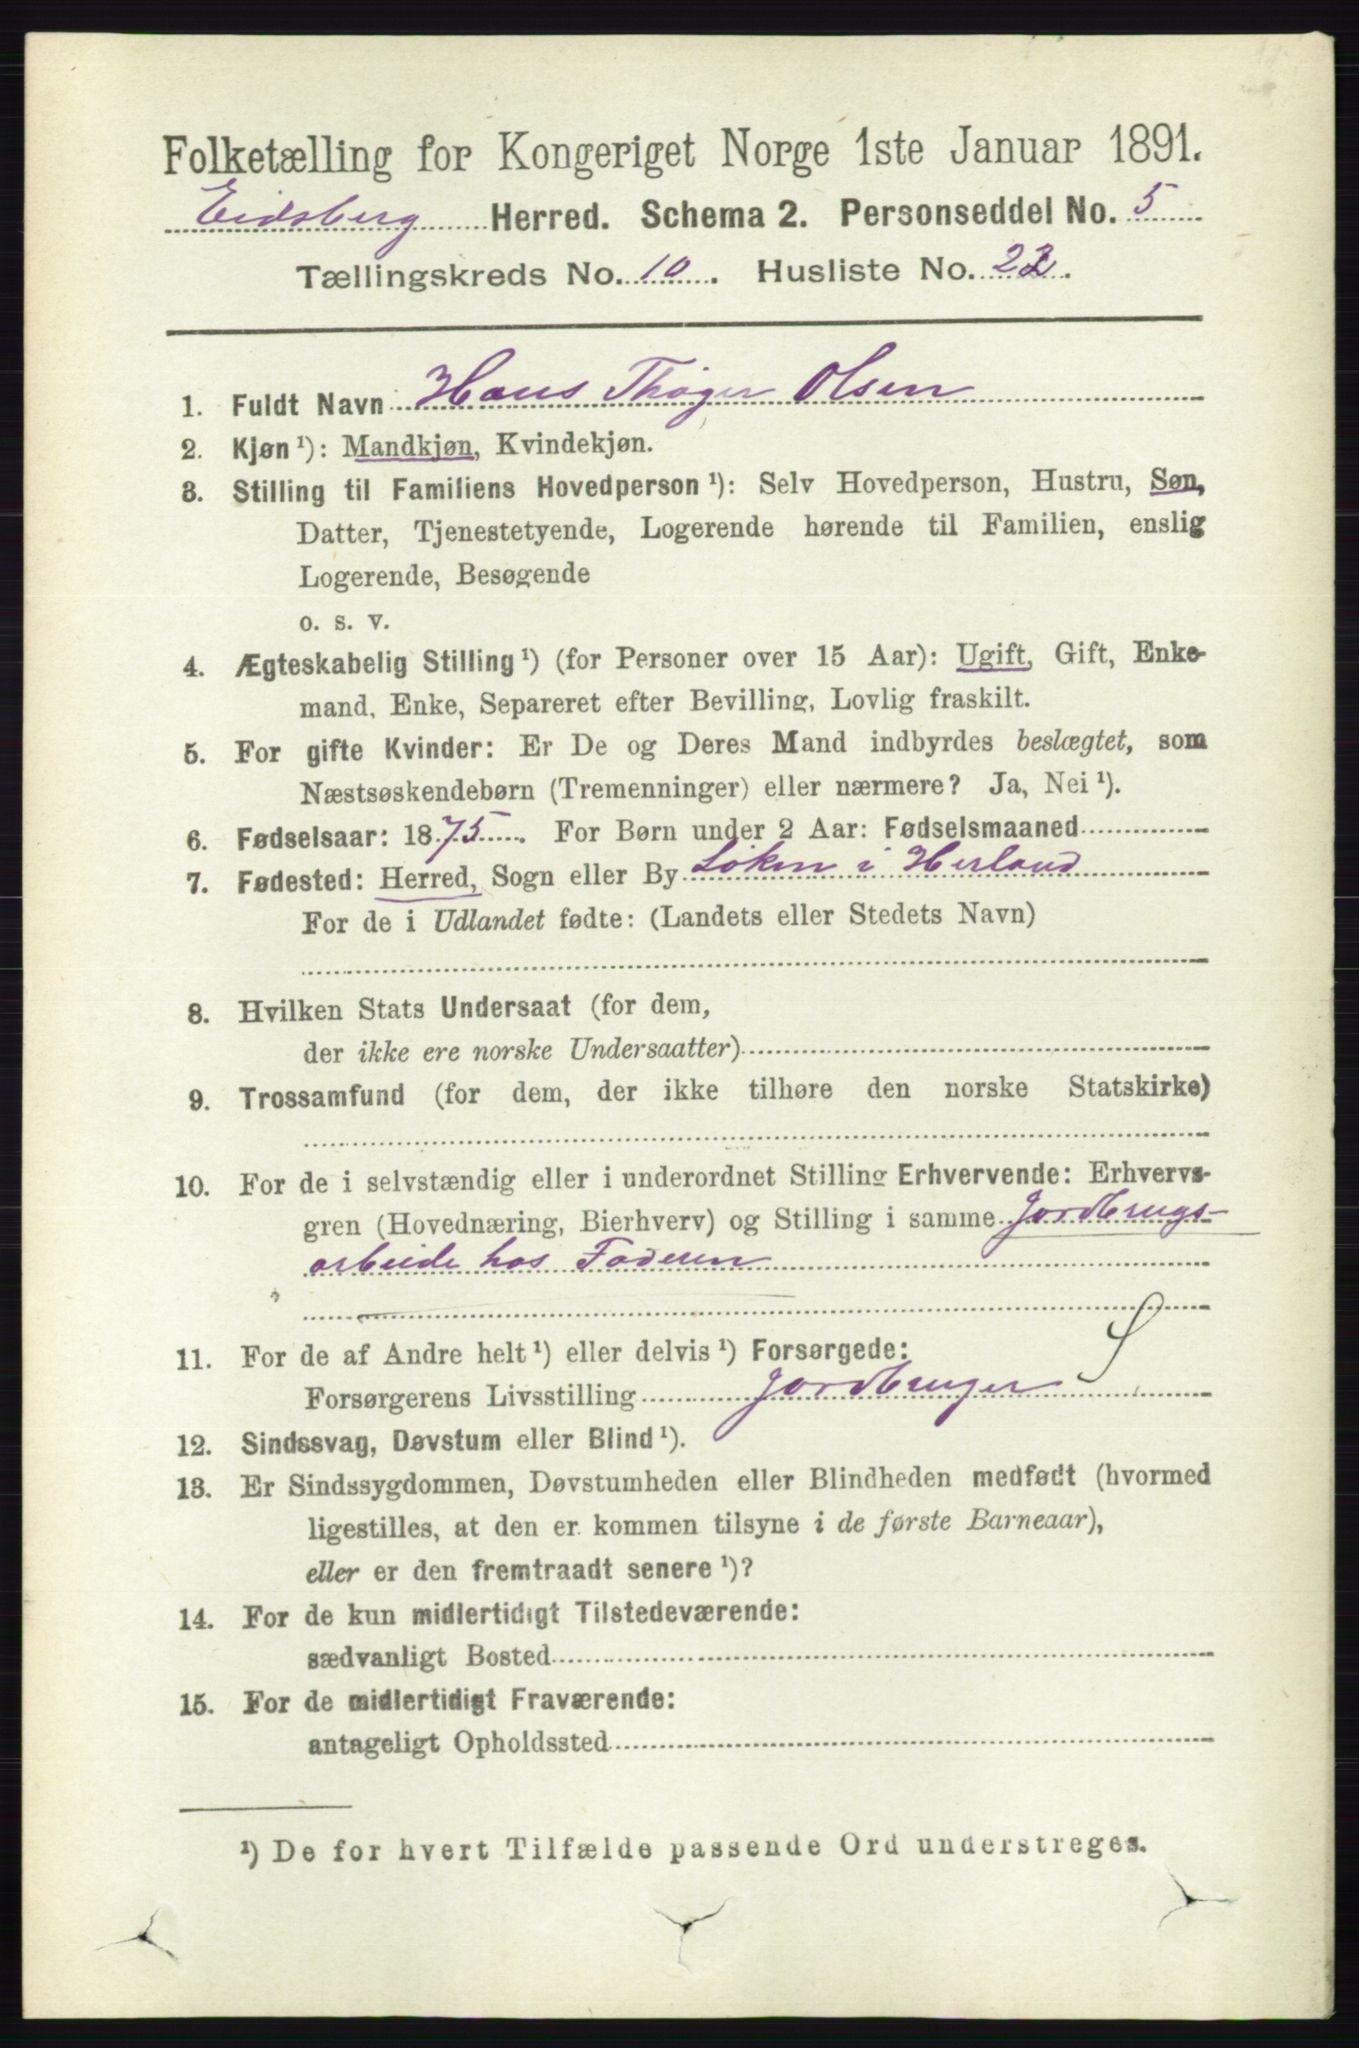 Folketælling for Kongeriget Norge 1ste Januar 1891.
Eidsberg Herred. Schema 2. Personseddel No. 5
Tællingskreds No. 10. Husliste No. 22.
1. Fuldt Navn Hans Thøger Olsen
2. Kjøn ¹): Mandkjøn, Kvindekjøn.
3. Stilling til Familiens Hovedperson ¹): Selv Hovedperson, Hustru, Søn,
Datter, Tjenestetyende, Logerende hørende til Familien, enslig
Logerende, Besøgende
o. s. v.
4. Ægteskabelig Stilling ¹) (for Personer over 15 Aar): Ugift, Gift, Enke-
mand, Enke, Separeret efter Bevilling, Lovlig fraskilt.
5. For gifte Kvinder: Er De og Deres Mand indbyrdes beslægtet, som
Næstsøskendebørn (Tremenninger) eller nærmere? Ja, Nei ¹).
6. Fødselsaar: 1875. For Børn under 2 Aar: Fødselsmaaned
7. Fødested: Herred, Sogn eller By Løken i Herland
For de i Udlandet fødte: (Landets eller Stedets Navn)
8. Hvilken Stats Undersaat (for dem,
der ikke ere norske Undersaatter)
9. Trossamfund (for dem, der ikke tilhøre den norske Statskirke)
10. For de i selvstændig eller i underordnet Stilling Erhvervende: Erhvervs-
gren (Hovednæring, Bierhverv) og Stilling i samme Jordbrugs-
arbeide hos Faderen
11. For de af Andre helt ¹) eller delvis ¹) Forsørgede: S
Forsørgerens Livsstilling Jordbruger
12. Sindssvag, Døvstum eller Blind ¹).
13. Er Sindssygdommen, Døvstumheden eller Blindheden medfødt (hvormed
ligestilles, at den er kommen tilsyne i de første Barneaar),
eller er den fremtraadt senere ¹)?
14. For de kun midlertidigt Tilstedeværende:
sædvanligt Bosted
15. For de midlertidigt Fraværende:
antageligt Opholdssted
¹) De for hvert Tilfælde passende Ord understreges.